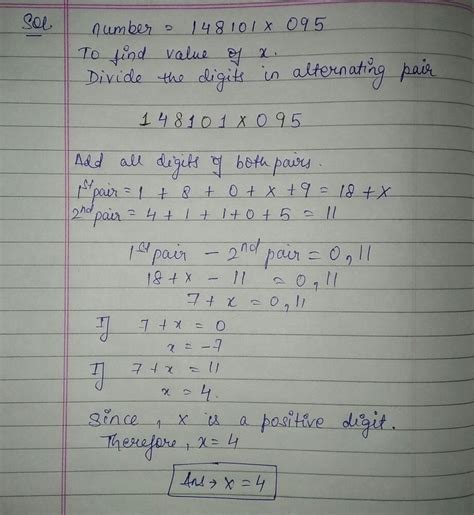 Sol number = 148101x095
To find value of x.
Divide the digits in alternating pair
148101x095
Add all digits of both pairs.
1st pair = 1 + 8 + 0 + x + 9 = 18 + x
2nd pair = 4 + 1 + 1 + 0 + 5 = 11
1st pair - 2nd pair = 0, 11
18 + x - 11 = 0, 11
7 + x = 0, 11
If 7 + x = 0
x = -7
If 7 + x = 11
x = 4.
Since, x is a positive digit.
Therefore, x = 4
Ans → x = 4